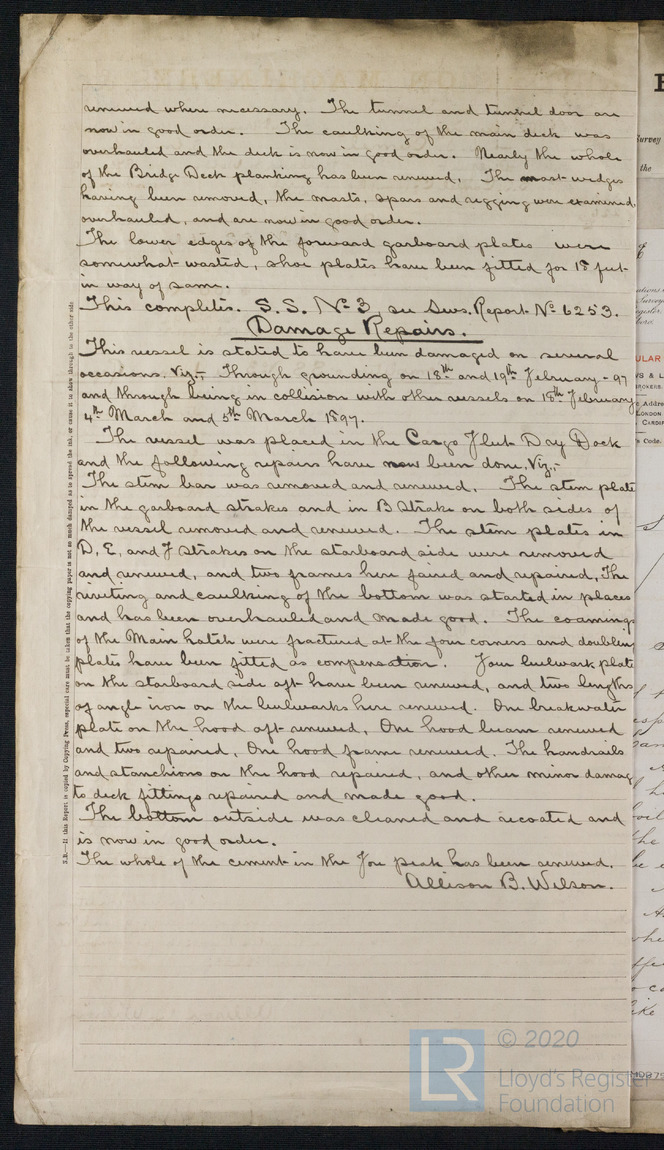 renewed where necessary. The tunnel and tunnel door are
now in good order. The caulking of the main deck was
overhauled and the deck is now in good order. Nearly the whole
of the Bridge Deck planking has been renewed. The mast wedges
having been removed, the masts, spars and rigging were examined,
overhauled, and are now in good order.
The lower edges of the forward garboard plates were
somewhat wasted, shoe plates have been fitted for 18 feet
in way of same.
This completes. S.S. No 3, see Sws. Report No 6253.
Damage Repairs.
This vessel is stated to have been damaged on several
occasions. Viz:- Through grounding on 18th and 19th February - 97
and through being in collision with other vessels on 18th February
4th March and 5th March 1897.
The vessel was placed in the Cargo Fleet Dry Dock
and the following repairs have now been done, Viz:-
The stem bar was removed and renewed. The stem plate
in the garboard strakes and in B Strake on both sides of
the vessel removed and renewed. The stem plates in
D, E, and F strakes on the starboard side were removed
and renewed, and two frames here faired and repaired, The
riveting and caulking of the bottom was started in places
and has been overhauled and made good. The coamings
of the Main hatch were fractured at the four corners and doubling
plates have been fitted as compensation. Four bulwark plate
on the starboard side aft have been renewed, and two lengths
of angle iron on the bulwarks here renewed. One breakwater
plate on the hood aft renewed, One hood beam renewed
and two repaired, One hood frame renewed. The handrails
and stanchions on the hood repaired, and other minor damag
to deck fittings repaired and made good.
The bottom outside was cleaned and recoated and
is now in good order.
The whole of the cement in the Fore peak has been renewed.
Allison B. Wilson.
N.B.—If this Report is copied by Copying Press, especial care must be taken that the copying paper is not so much damped as to spread the ink, or cause it to show through to the other side
Survey
the
ULAR
LONDON
CARDIF
Code.
LR
© 2020
Lloyd's Register
Foundation